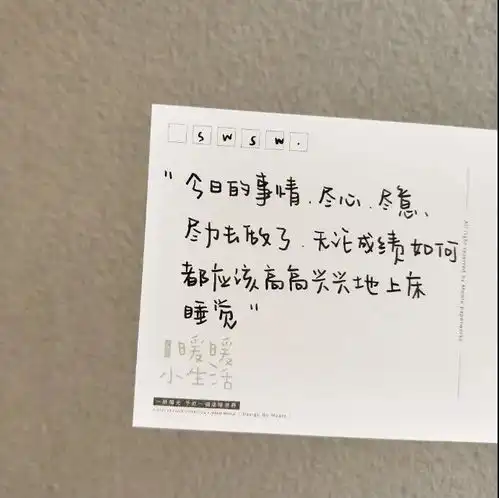 s w s w .
"今日的事情、尽心、尽意、
尽力去做了、无论成绩如何
都应该高高兴兴地上床
睡觉"
暖暖
小生活